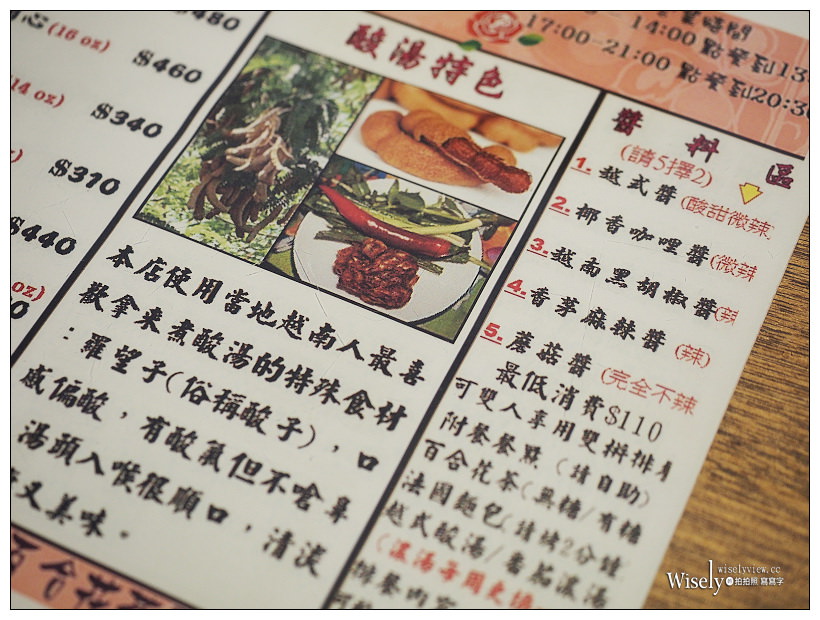 $480
(16 oz)
$460
$340
$310
$440
酸湯特色
本店使用當地越南人最喜
歡拿來煮酸湯的特殊食材
：羅望子(俗稱酸子)，口
感偏酸，有酸氣但不嗆鼻
湯頭入喉很順口，清淡
又美味。
百合花
14:00 點餐到13:
17:00-21:00 點餐到20:30
醬料區
(請5擇2)
1. 越式醬 (酸甜微辣
2. 椰香咖哩醬 (微辣
3. 越南黑胡椒醬 (辣
4. 香茅麻辣醬 (辣)
5. 蘑菇醬 (完全不辣
最低消費$110
可雙人享用雙拼排
附餐餐點 (請自助)
百合花茶(無糖/有糖
法國麵包(請烤2分鐘
越式酸湯/番茄濃湯
(濃湯每周更換
排餐內容
wiselyview.cc
Wisely 拍拍照 寫寫字